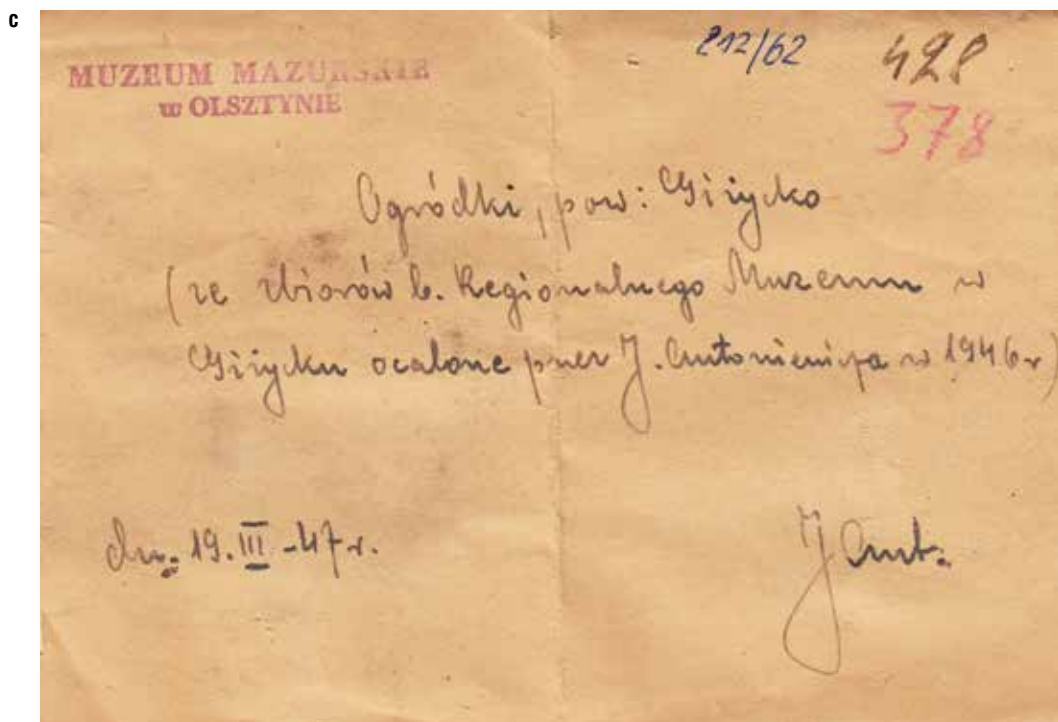 c
MUZEUM MAZURSKIE
w OLSZTYNIE
212/62
428
378
Ogródki, pow: Giżycko
(ze zbiorów b. Regionalnego Muzeum w
Giżycku ocalone przez J. Antoniewicza w 1946 r)
dn. 19. III - 47 r.
J Ant.